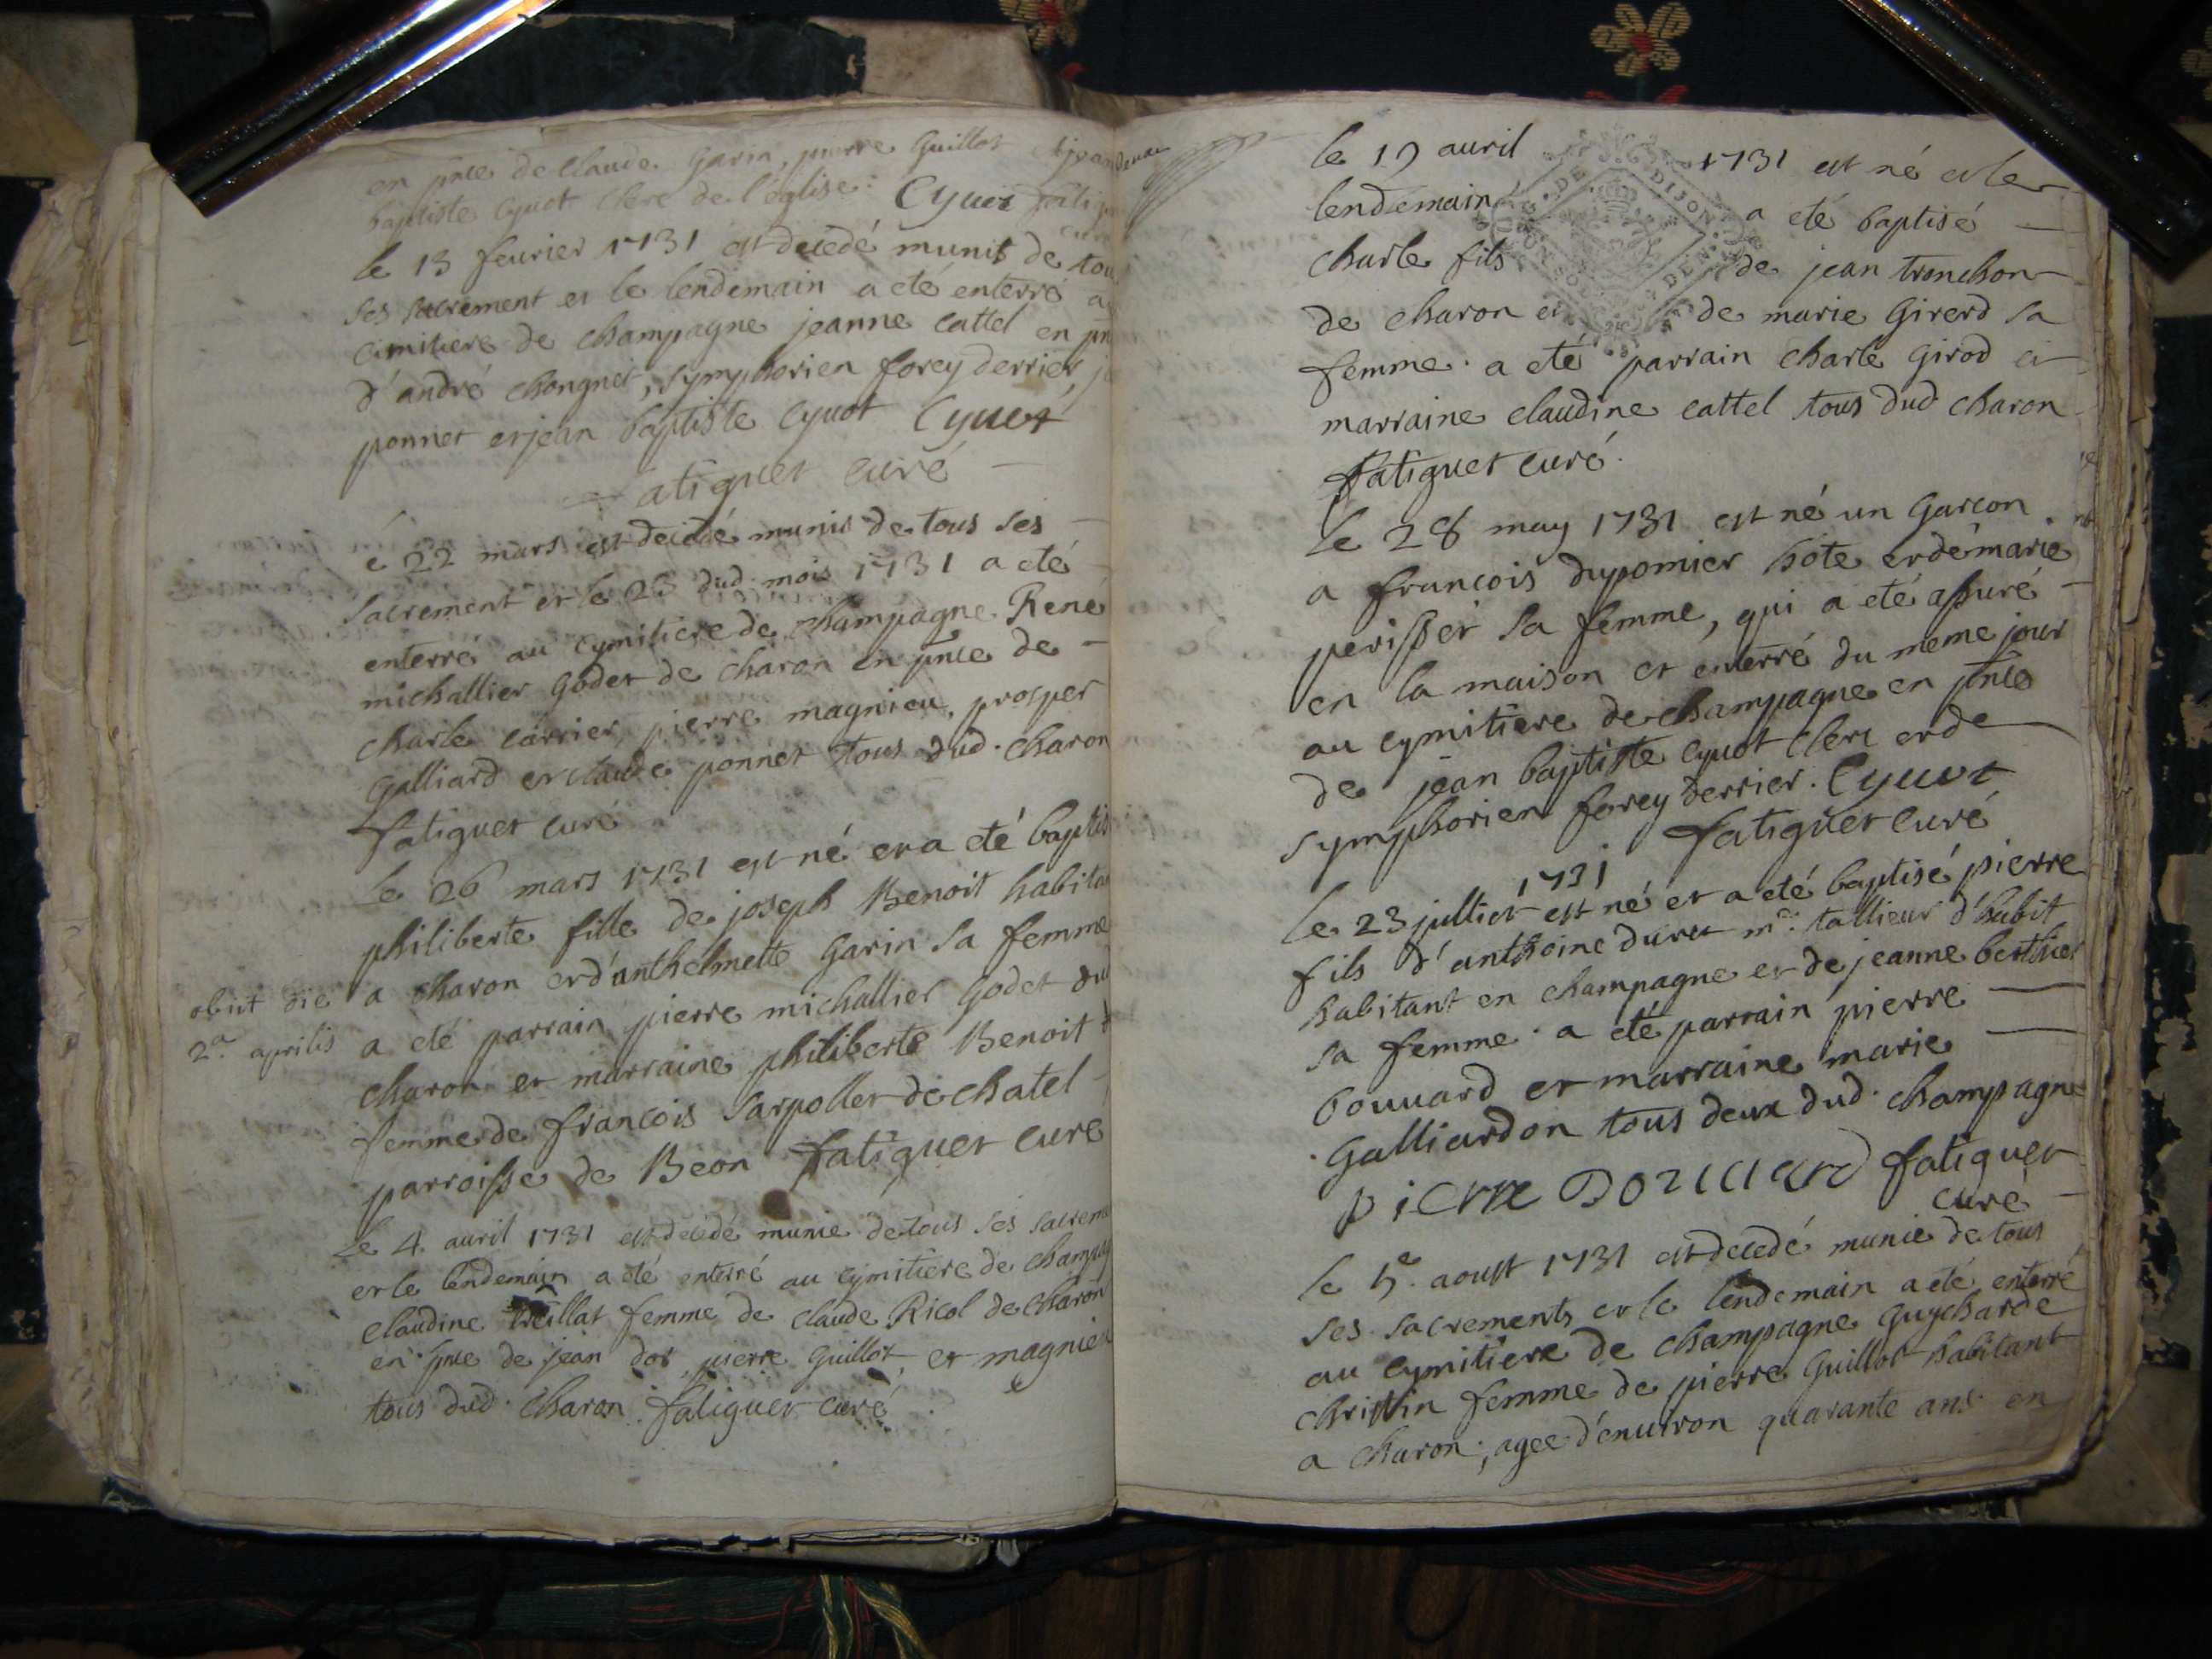 en pnce de claude Garin, pierre Guillot
baptiste Cyuot clerc de l'église. Cyuot
le 13 feurier 1731 est decedé munit de tou
ses sacrement et le lendemain a eté enterré
cimitiere de champagne jeanne cattel en
d'andré chongnet, symphorien forey derrier,
ponnet et jean baptiste Cyuot Cyuot
atiguet curé
le 22 mars est decedé munis de tous ses
sacrement et le 23 dud. mois 1731 a eté
enterré au cymitiere de champagne René
michallier Godet de charon en pnce de
charle carrier, pierre magnieu, prosper
Galliard et claude ponnet tous dud. charon
fatiguet curé
le 26 mars 1731 est né et a eté baptis
philiberte fille de joseph Benoit habita
a charon et d'anthelmette Garin sa femme
obiit die
2a. aprilis
a eté parrain pierre michallier Godet du
charon et marraine philiberte Benoit
femme de francois sarpollet de chatel
parroisse de Béon fatiguet curé
le 4. auril 1731 est decedé munie de tous ses sacreme
et le lendemain a eté enterré au cymitiere de champag
claudine femme de claude Ricol de charon
en pnce de jean dot, pierre Guillot, et magnieu
tous dud. charon. fatiguet curé
le 19 auril 1731 est né et le
lendemain a eté baptisé
DE DIJON
charle fils de jean tronchon
de charon et de marie Girerd sa
femme. a eté parrain charle Girod et
marraine claudine cattel tous dud charon
fatiguet curé.
le 28 may 1731 est né un Garcon
a francois dupomier hôte et de marie
perisser sa femme, qui a eté assuré
en la maison et enterré du meme jour
au cymitiere de champagne en pnce
de jean baptiste Cyuot clerc et de
symphorien forey derrier. Cyuot
fatiguet curé
1731
le 23 julliet est né et a eté baptisé pierre
fils d'anthoine duret mre. tallieur d'habit
habitant en champagne et de jeanne berthier
sa femme. a eté parrain pierre
bouuard et marraine marie
Galliardon tous deux dud. champagne
pierre bouuard fatiguet
curé
le 5e. aoust 1731 est decedé munie de tous
ses sacrements et le lendemain a eté enterré
au cymitiere de champagne Guycharde
christin femme de pierre Guillot habitant
a charon, agee d'enuiron quarante ans en